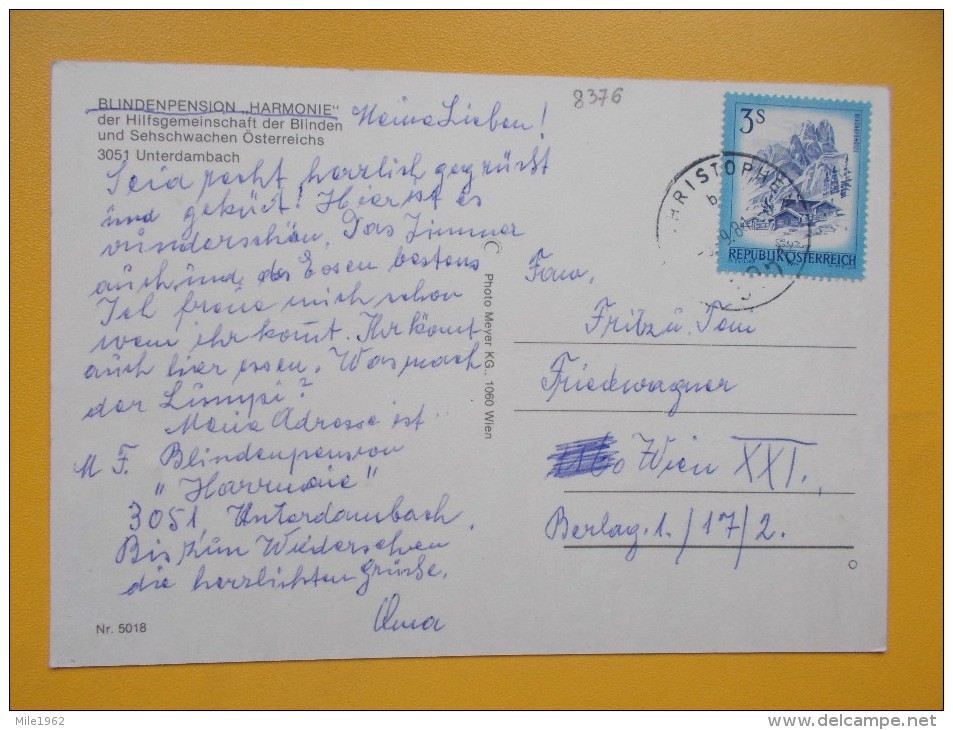 BLINDENPENSION „HARMONIE"
der Hilfsgemeinschaft der Blinden
und Sehschwachen Österreichs
3051 Unterdambach
Meine Lieben!
Seid recht herzlich gegrüßt
und geküßt! Hier ist es
wunderschön. Das Zimmer
auch und das Essen bestens
Ich freue mich schon
wenn ihr komt. Ihr könt
auch hier essen. Was mach
der Lümpi?
Meine Adresse ist
M F. Blindenpension
"Harmonie"
3051, Unterdambach.
Bis zum Wiedersehen
die herzlichsten Grüße.
Oma
Nr. 5018
© Photo Meyer KG., 1060 Wien
8376
3S
REPUBLIK ÖSTERREICH
HRISTOPHE
Fam.
Fritz u.
Friedwagner
Wien XXI.,
Berlag. 1./17/2.
Mile1962
delcampe.net